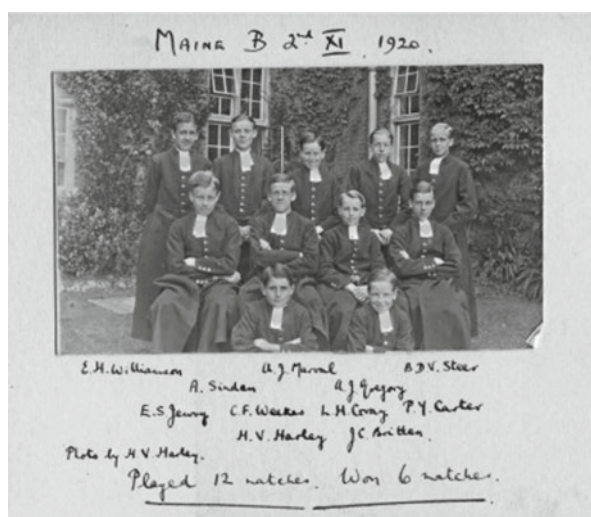 MAINE B 2nd XI 1920.
E. H. Williamson A. J. Marval B. D. V. Steer
A. Sinden A. J. Gregory
E. S. Jewry C. F. Weekes L. H. P. Y. Carter
H. V. Harley J. C. Britten.
Photo by H. V. Harley.
Played 12 matches. Won 6 matches.